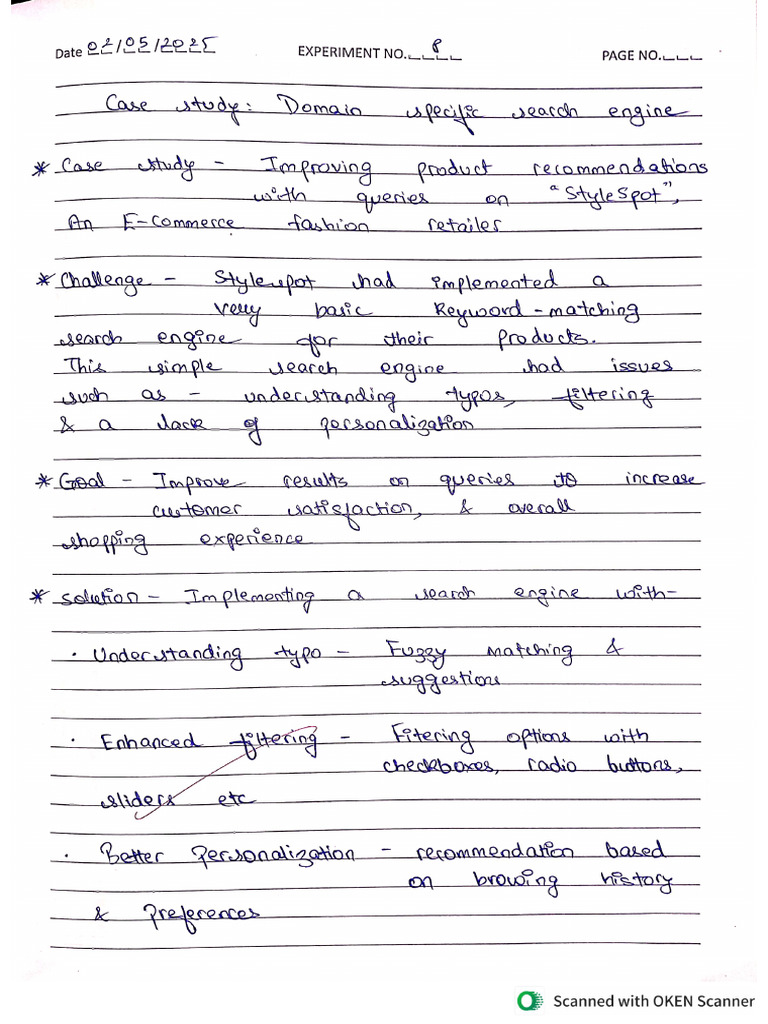 Date 02/05/2025 EXPERIMENT NO. 8 PAGE NO.
Case study: Domain specific search engine
* Case study - Improving product recommendations
with queries on "StyleSpot",
An E-commerce fashion retailer
* Challenge - Stylespot had implemented a
very basic keyword-matching
search engine for their products.
This simple search engine had issues
such as - understanding typos, filtering
& a lack of personalization
* Goal - Improve results on queries to increase
customer satisfaction, & overall
shopping experience
* Solution - Implementing a search engine with-
· Understanding typo - Fuzzy matching &
suggestions
· Enhanced filtering - Fitering options with
checkboxes, radio buttons,
sliders etc
· Better Personalization - recommendation based
on browing history
& Preferences
Scanned with OKEN Scanner